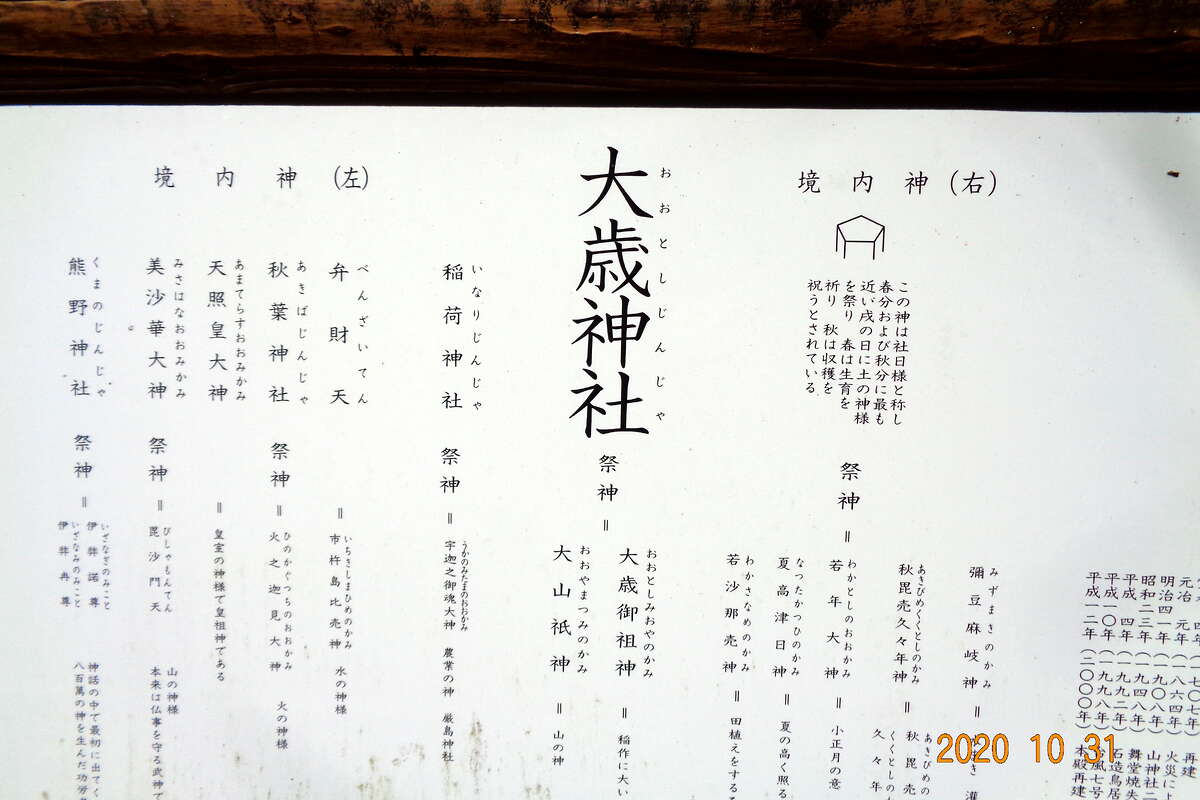 元治 元年(一八六四年)
明治四一年(一九〇八年) 山神社二
昭和二三年(一九四八年) 舞堂焼失
平成 四年(一九九二年) 石造鳥居
平成一〇年(一九九八年) 台風七号
平成一二年(二〇〇〇年) 本殿再建
境内神(右)
この神は社日様と称し
春分および秋分に最も
近い戌の日に土の神様
を祭り 春は生育を
祈り 秋は収穫を
祝うとされている
祭神=
彌豆麻岐神 みずまきのかみ =
秋毘売久々年神 あきびめくくとしのかみ = 秋毘売
久々年
若年大神 わかとしのおおかみ = 小正月の意
夏高津日神 なつたかつひのかみ = 夏の高く照る
若沙那売神 わかさなめのかみ = 田植えをする
大歳神社 おおとしじんじゃ
祭神=
大歳御祖神 おおとしみおやのかみ = 稲作に大い
大山祇神 おおやまつみのかみ = 山の神
境内神(左)
稲荷神社 いなりじんじゃ 祭神=宇迦之御魂大神 うかのみたまのおおかみ 農業の神 厳島神社
弁財天 べんざいてん =市杵島比売神 いちきしまひめのかみ 水の神様
秋葉神社 あきばじんじゃ 祭神=火之迦見大神 ひのかぐつちのおおかみ 火の神様
天照皇大神 あまてらすおおみかみ =皇室の神様で皇祖神である
美沙華大神 みさはなおおみかみ 祭神=毘沙門天 びしゃもんてん 山の神様
本来は仏事を守る武神で
熊野神社 くまのじんじゃ 祭神=伊弉諾尊 いざなぎのみこと
伊弉冉尊 いざなみのみこと
神話の中で最初に出てく
八百萬の神を生んだ功労
2020 10 31